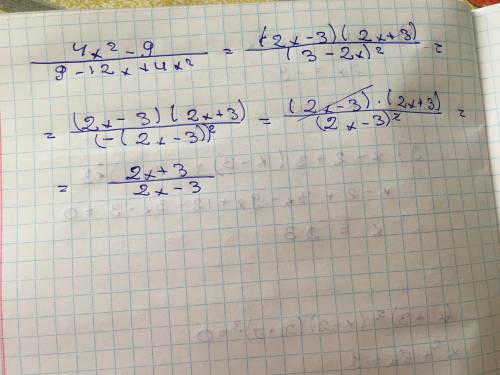 (4x² - 9)/(9 - 12x + 4x²) = ((2x-3)(2x+3))/((3-2x)²) =
= ((2x-3)(2x+3))/((-(2x-3))²) = ((2x-3)·(2x+3))/((2x-3)²) =
= (2x+3)/(2x-3)